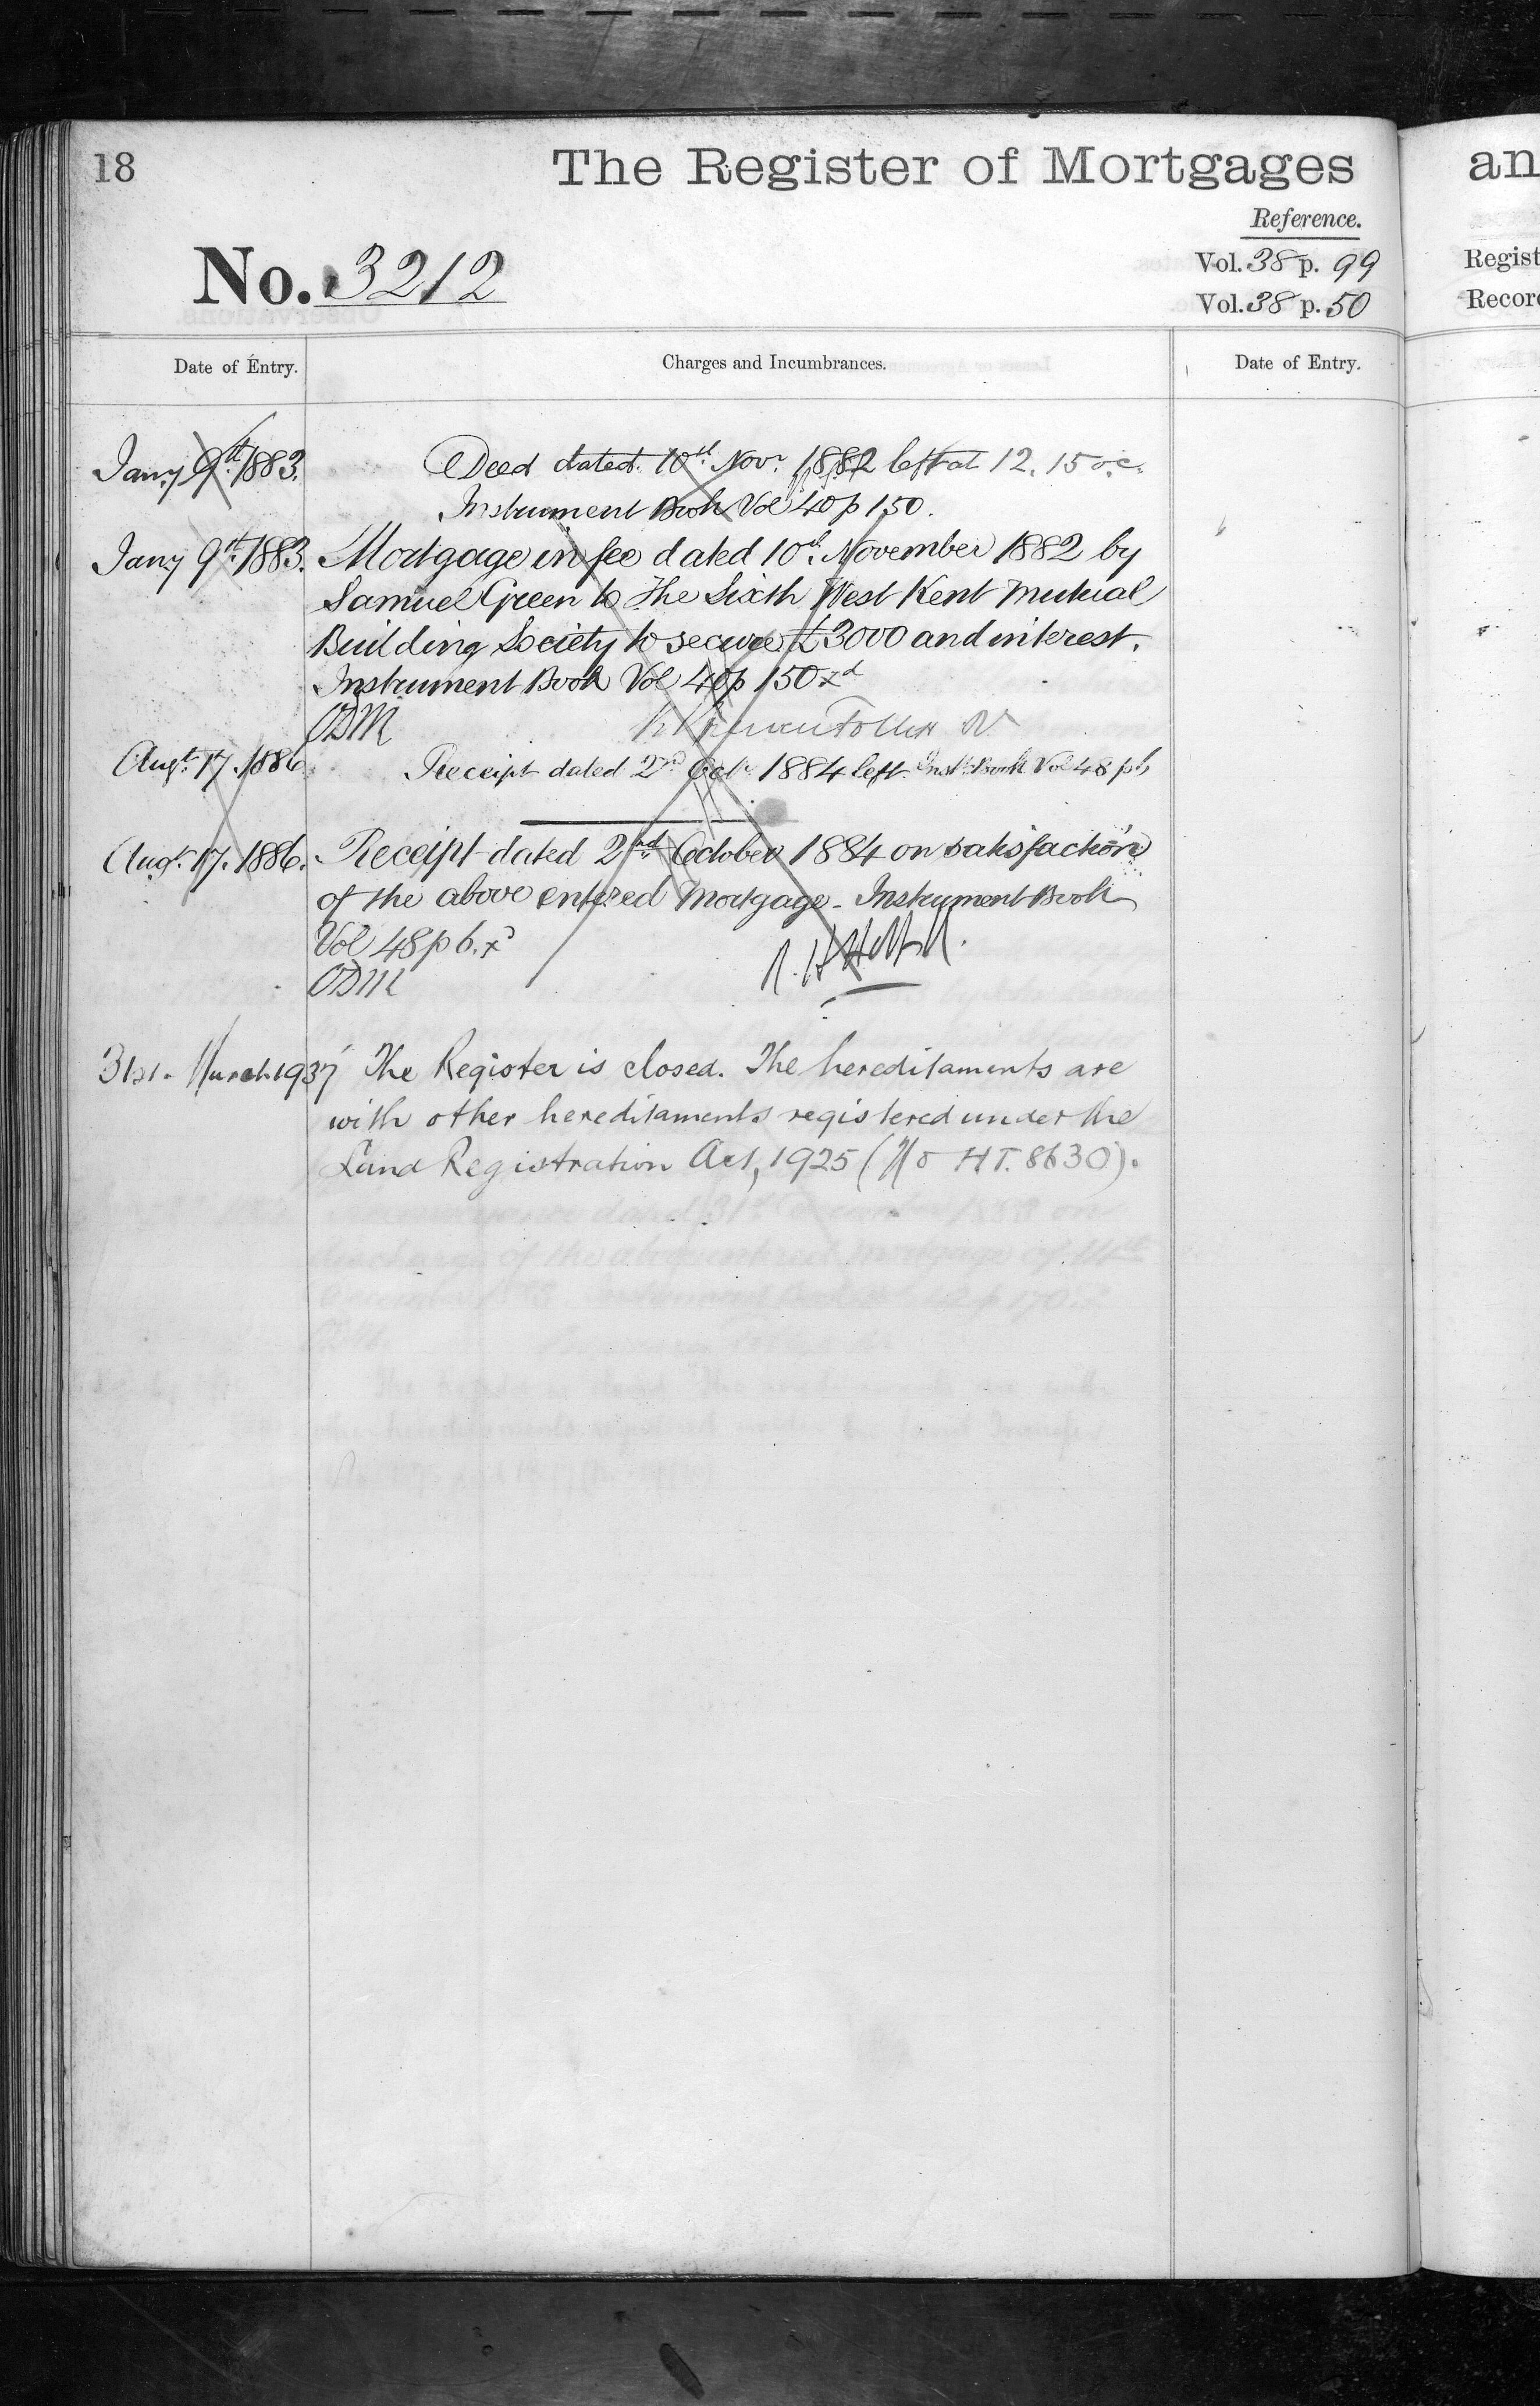 18
The Register of Mortgages
an
Reference.
No. 3212
Vol. 38 p. 99
Vol. 38 p. 50
Regist
Record
Date of Entry.
Charges and Incumbrances.
Date of Entry.
Jany 9th 1883. Deed dated 10th Novr 1882 left at 12.15 o.c.
Instrument Book Vol 40 p 150.
Jany 9th 1883. Mortgage in fee dated 10th November 1882 by
Samuel Green to The Sixth West Kent Mutual
Building Society to secure £3000 and interest.
Instrument Book Vol 40 p 150 xd
ODM
Augt 17. 1886 Receipt dated 2nd Octr 1884 left Inst. Book Vol 48 p 6
Augt 17. 1886. Receipt dated 2nd October 1884 on satisfaction
of the above entered Mortgage - Instrument Book
Vol 48 p 6. xd
ODM
31st March 1937 The Register is closed. The hereditaments are
with other hereditaments registered under the
Land Registration Act, 1925 (No HT. 8630).